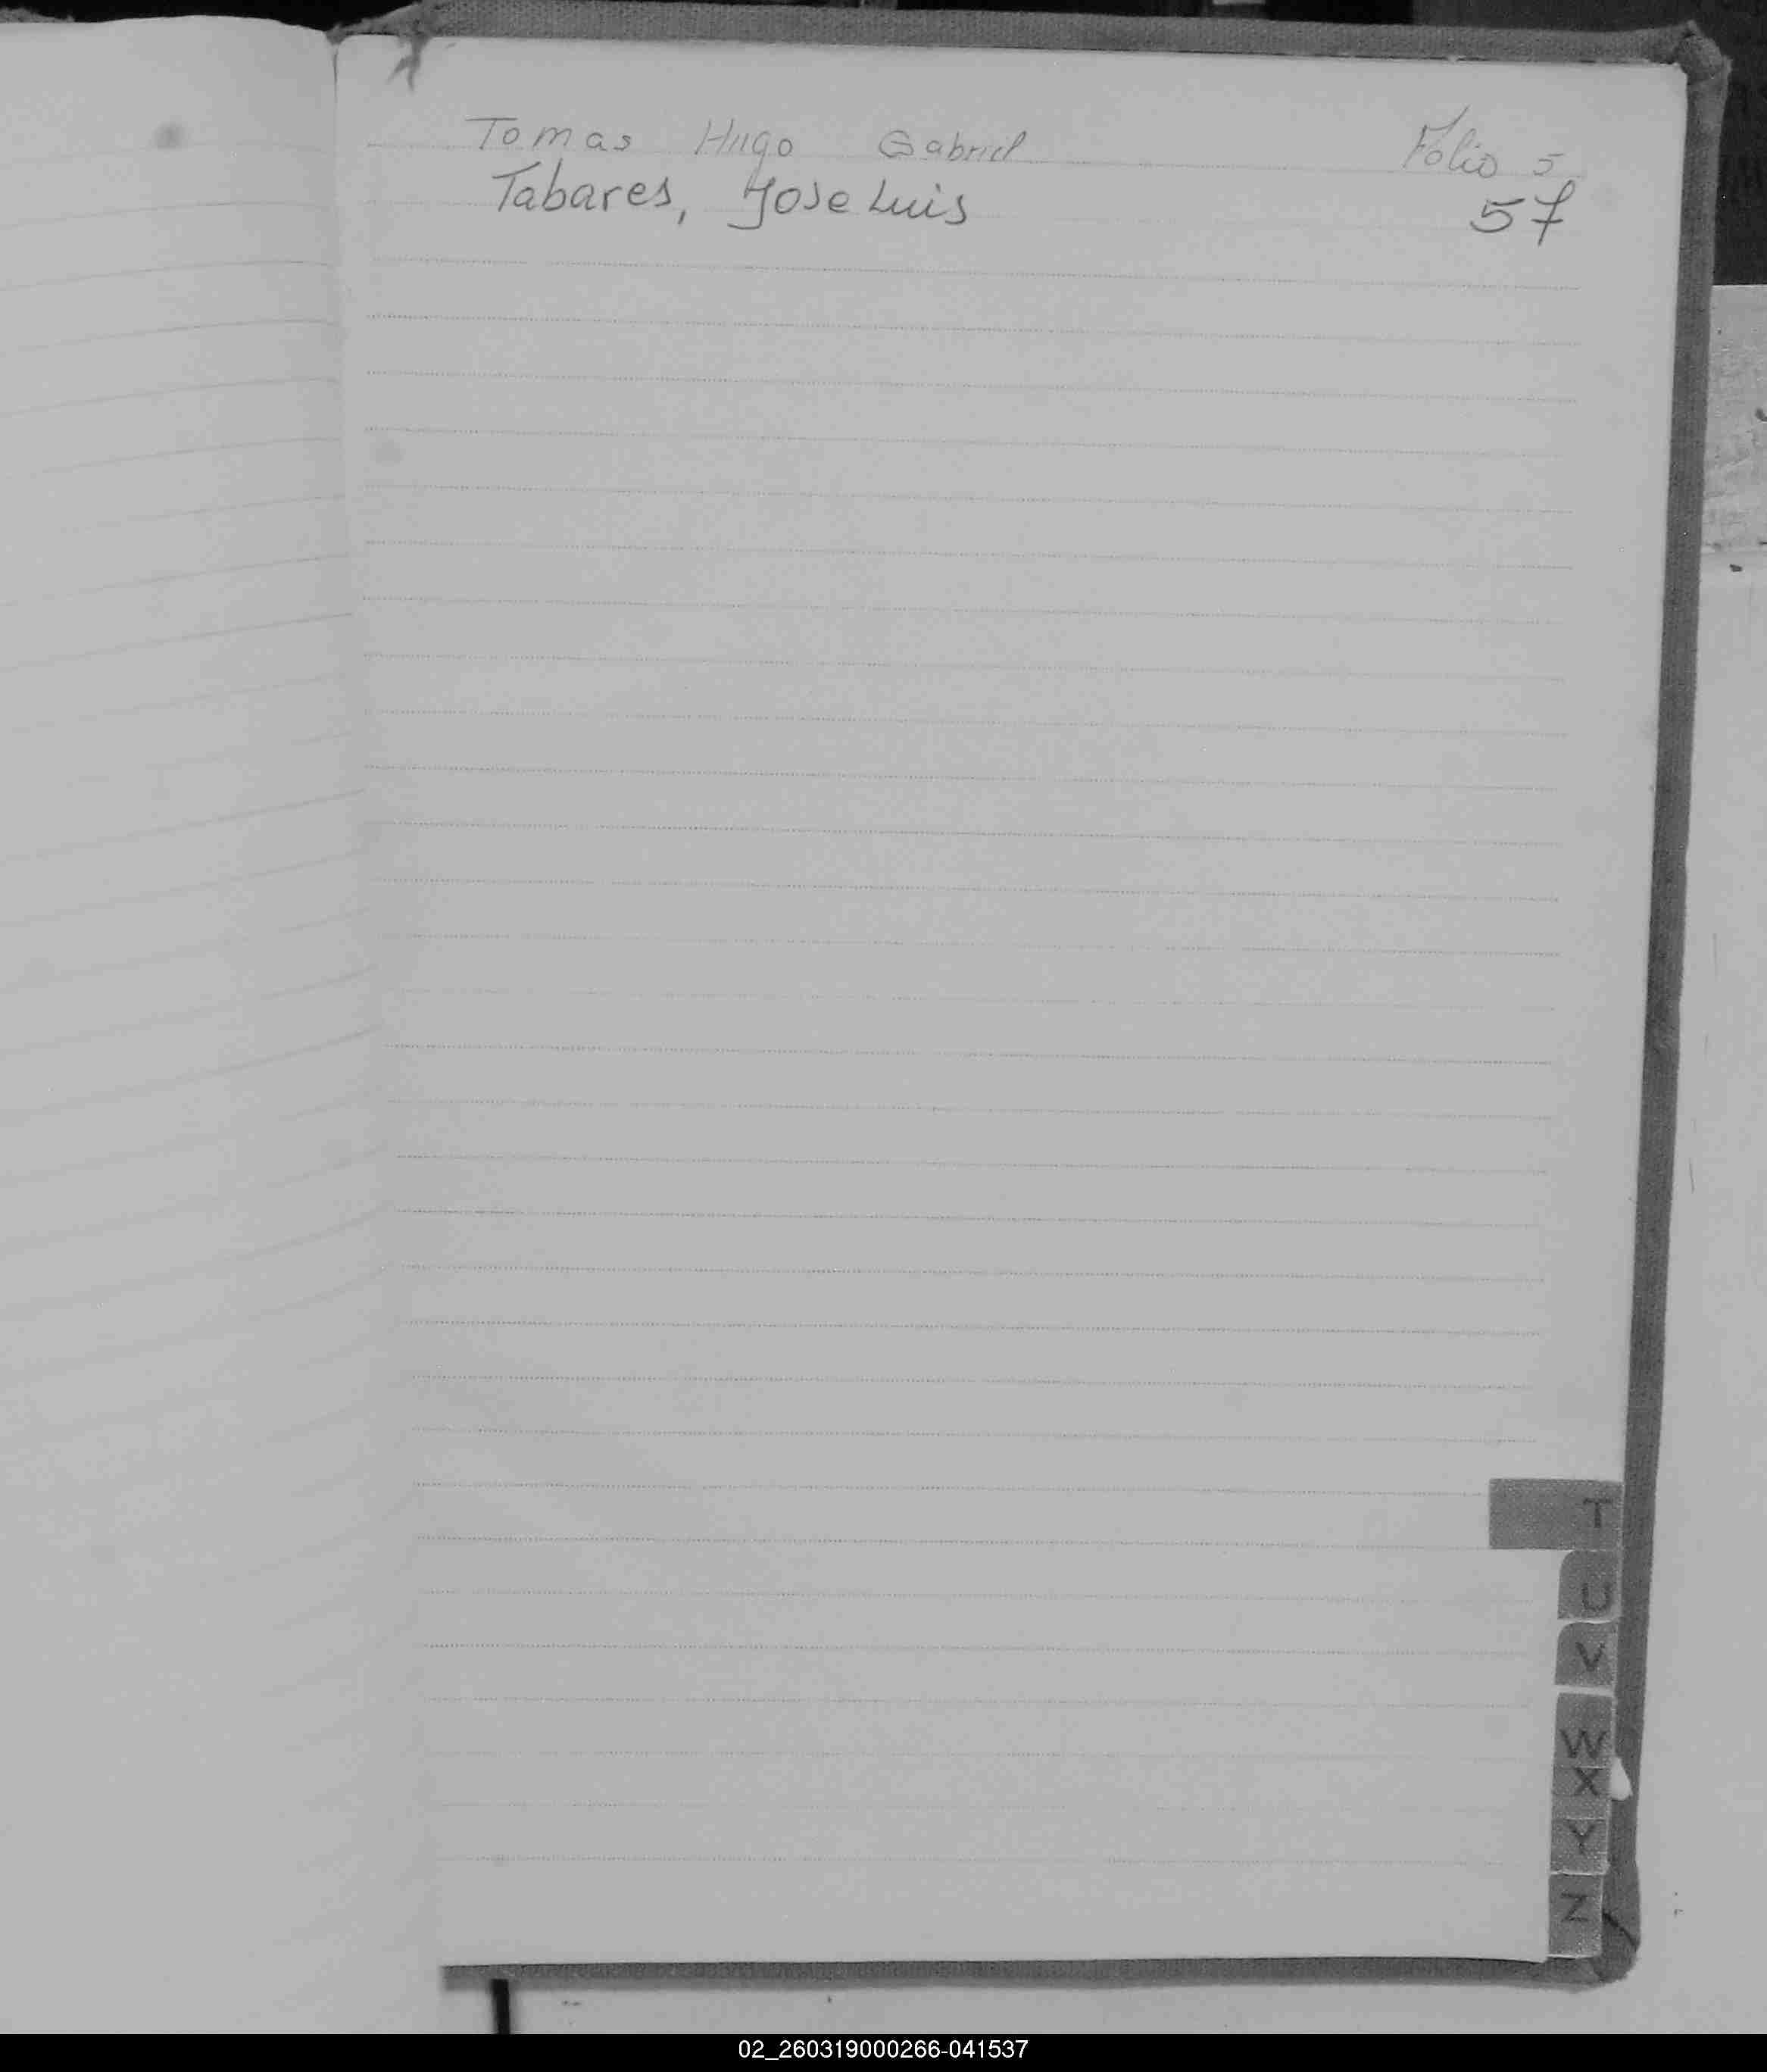 Tomas Hugo Gabriel Folio 5
Tabares, Jose Luis 57
T
U
V
W
X
Y
Z
02_260319000266-041537